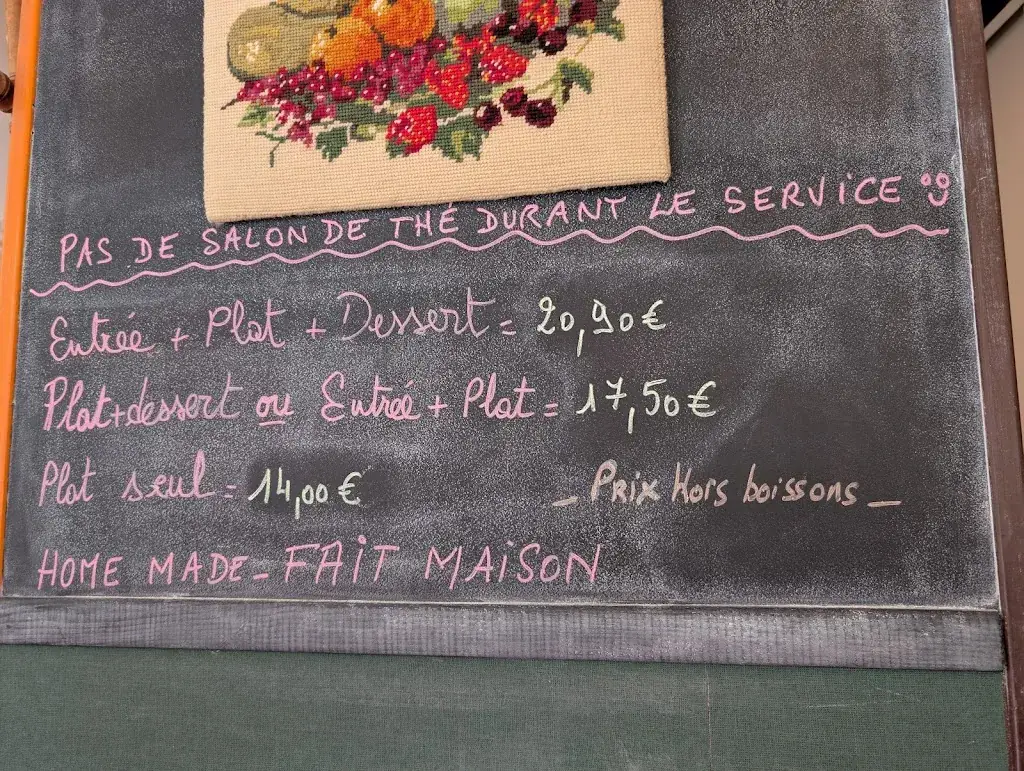 PAS DE SALON DE THÉ DURANT LE SERVICE
Entrée + Plat + Dessert = 20,90€
Plat+dessert ou Entrée + Plat = 17,50€
Plat seul = 14,00€
_ Prix Hors boissons _
HOME MADE - FAIT MAISON